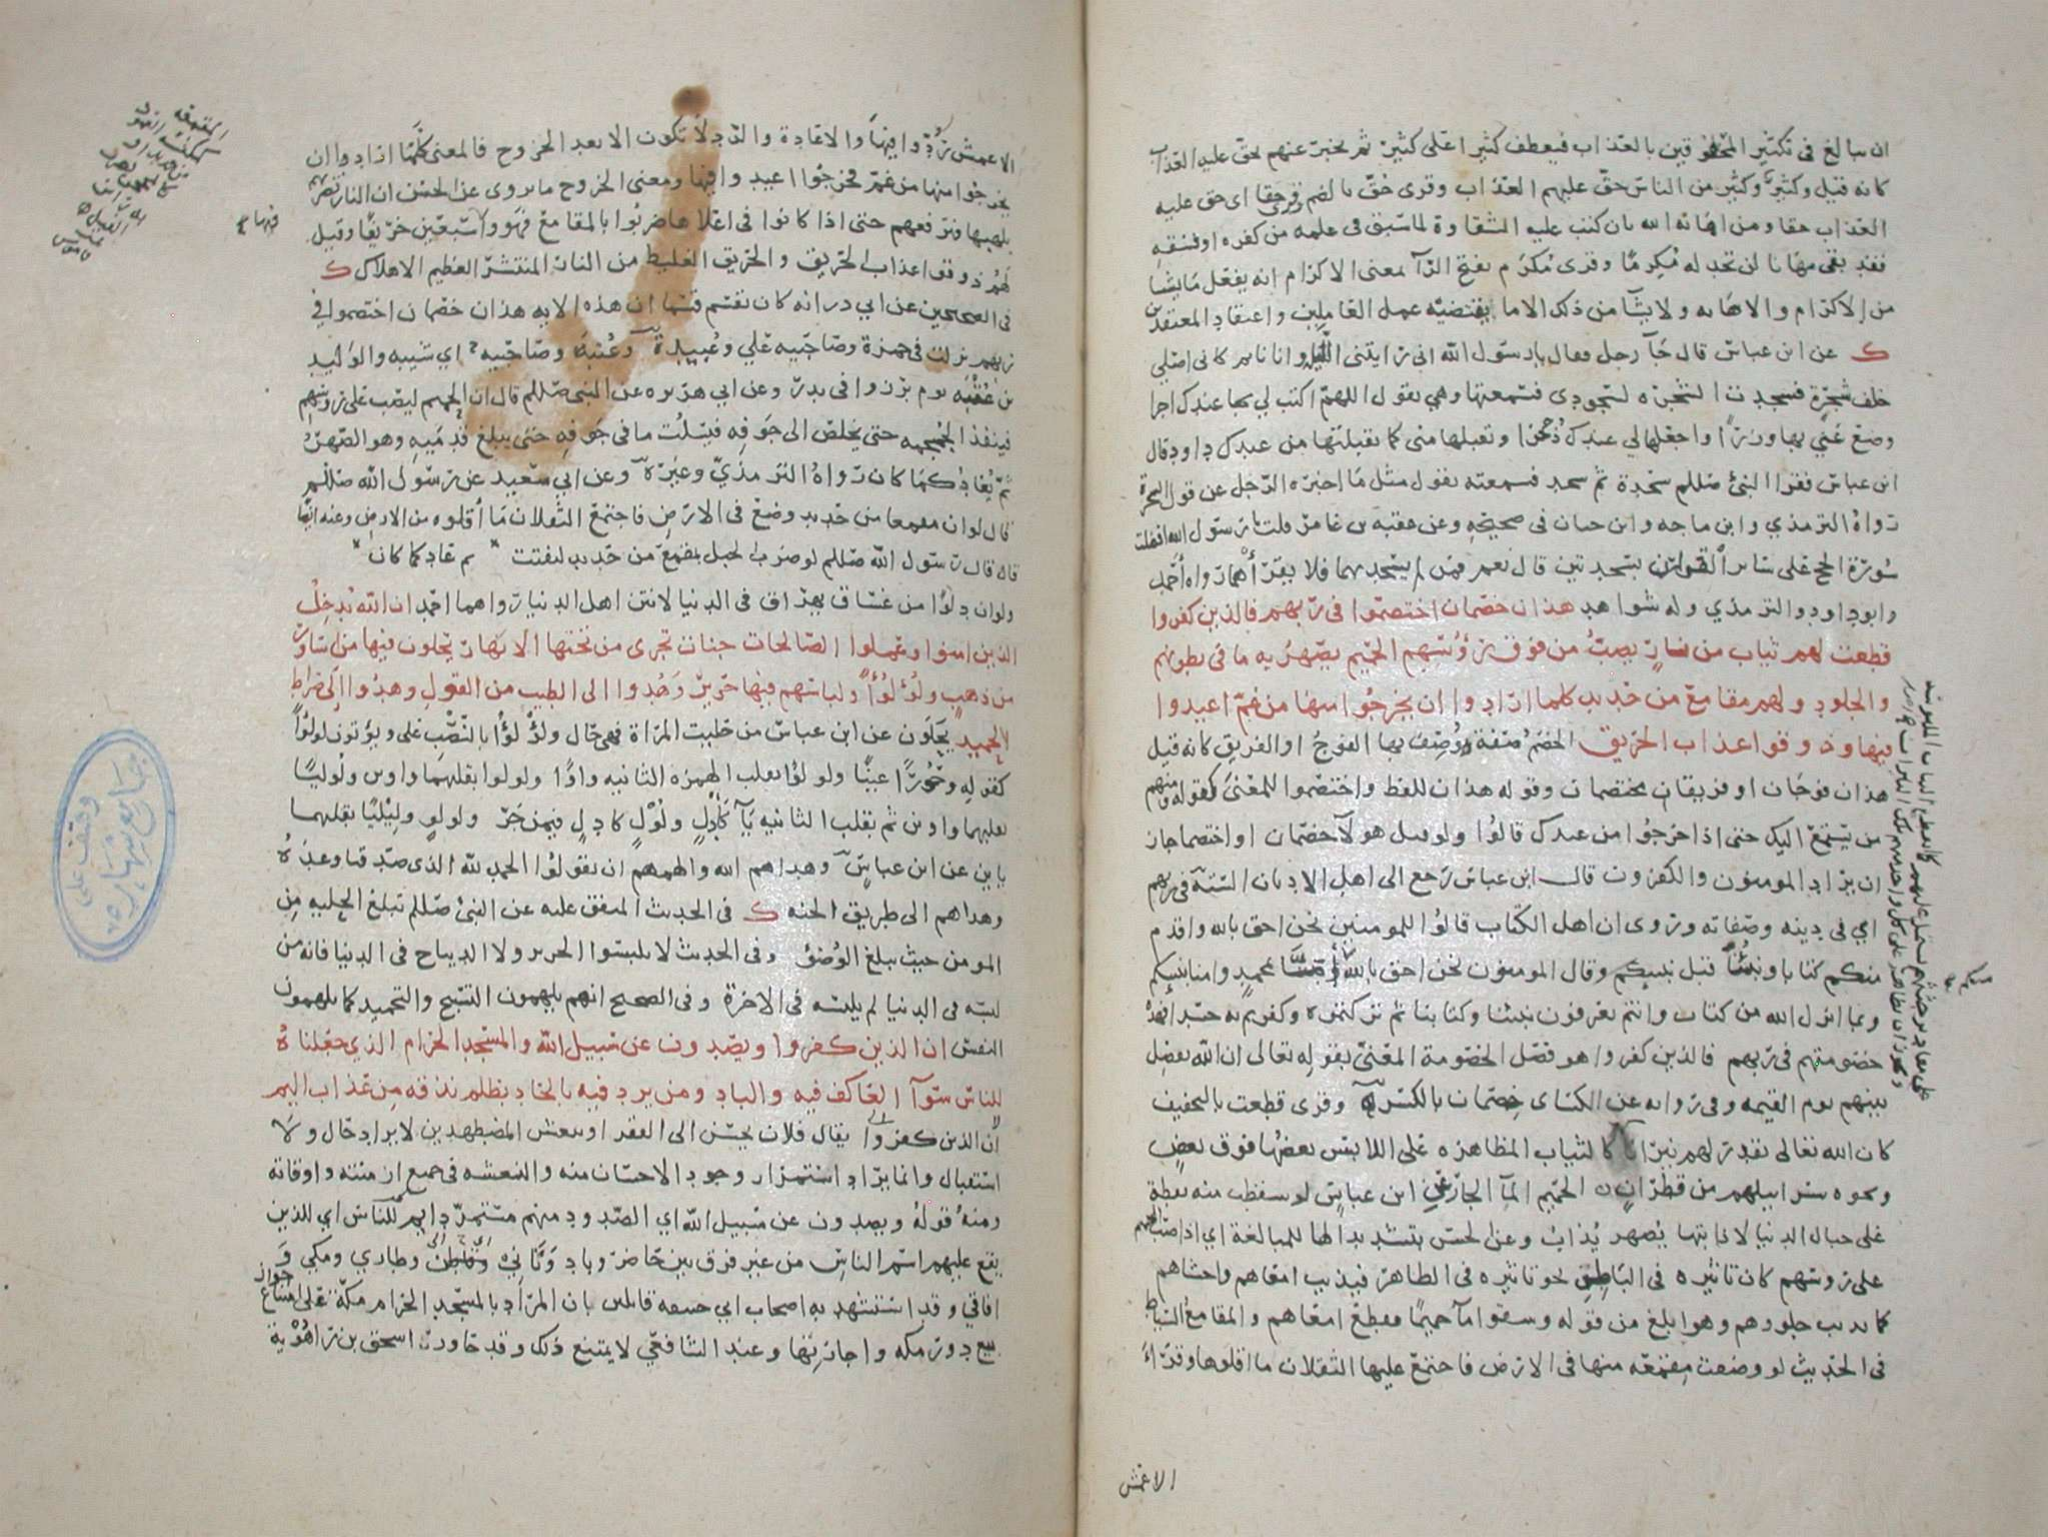 ان يبالغ في تكثير المحقوقين بالعذاب فيعطف كثيرا على كثير ثم يخبر عنهم بحق عليه العذاب
كانه قيل وكثير وكثير من الناس حق عليهم العذاب وقرى حق بالضم وقرى حقا اى حق عليه
العذاب حقا ومن اهانه الله بان كتب عليه الشقاوة لما سبق في علمه من كفره او فسقه
فقد بقى مهانا لن تجد له مكرما وقرى مكرم بفتح الرا بمعنى الاكرام انه يفعل ما يشا
من الاكرام والاهانه ولا يشآ من ذلك الا ما يقتضيه عمل العاملين واعتقاد المعتقدين
ك عن ابن عباس قال جآ رجل فقال يا رسول الله انى رايتنى الليلة وانا نايم كانى اصلى
خلف شجرة فسجدت الشجره لسجودى فسمعتها وهي تقول اللهم اكتب لي بها عندك اجرا
وضع عني بها وزرا واجعلها لي عندك ذخرا وتقبلها منى كما تقبلتها من عبدك داود قال
ابن عباس فقرا النبى صللم سجدة ثم سجد فسمعته يقول مثل ما اخبره الرجل عن قول الشجرة
رواه الترمذي وابن ماجه وابن حبان في صحيحه وعن عقبة بن عامر قلت يا رسول الله افضلت
سورة الحج على ساير القران بسجدتين قال نعم فمن لم يسجدهما فلا يقرأهما رواه احمد
وابو داود والترمذي وله شواهد هذان خصمان اختصموا فى ربهم فالذين كفروا
قطعت لهم ثياب من نار يصب من فوق رؤسهم الحميم يصهر به ما في بطونهم
والجلود ولهم مقامع من حديد كلما ارادوا ان يخرجوا منها من غم اعيدوا
فيها وذوقوا عذاب الحريق الخصم صفة وصف بها الفوج او الفريق كانه قيل
هذان فوجان او فريقان يختصمان وقوله هذان للفظ واختصموا للمعنى كقوله ومنهم
من يستمع اليك حتى اذا خرجوا من عندك قالوا ولو قيل هولآ خصمان او اختصما جاز
ان يراد المومنون والكفرون قال ابن عباس رجع الى اهل الاديان الستة في ربهم
اي في دينه وصفاته وروى ان اهل الكتاب قالوا للمومنين نحن احق بالله واقدم
منكم كتابا ونبينا قبل نبيكم وقال المومنون نحن احق بالله آمنا بمحمد وامنا بنبيكم
وبما انزل الله من كتاب وانتم تعرفون نبينا وكتابنا ثم تركتموه وكفرتم به حسدا فهذه
خصومتهم في ربهم فالذين كفروا هو فصل الخصومة المعنى بقوله تعالى ان الله يفصل
بينهم يوم القيمه وفي روايه عن الكساى خصمان بالكسر وقرى قطعت بالتخفيف
كان الله تعالى يقدر لهم نيرانا كالثياب المظاهرة على اللابس بعضها فوق بعض
ونحوه سرابيلهم من قطران الحميم المآ الحار عن ابن عباس لو سقطت منه نقطة
على جبال الدنيا لاذابتها يصهر يذاب وعن الحسن بتشديد الها للمبالغة اي اذا صب الحميم
على روسهم كان تاثيره في الباطن نحو تاثيره في الظاهر فيذيب امعاهم واحشاهم
كما يذيب جلودهم وهو ابلغ من قوله وسقوا مآ حميما فقطع امعاهم والمقامع السياط
في الحديث لو وضعت مقمعه منها في الارض فاجتمع عليها الثقلان ما اقلوها وقراة
الاعمش
الاعمش ردوا فيها والاعادة والرد لا تكون الا بعد الخروج فالمعنى كلما ارادوا ان
يخرجوا منها من غم فخرجوا اعيدوا فيها ومعنى الخروج ما يروى عن الحسن ان النار تضربهم
بلهبها فترفعهم حتى اذا كانوا في اعلاها ضربوا بالمقامع فهووا سبعين خريفا وقيل
لهم ذوقوا عذاب الحريق والحريق الغليظ من النار المنتشر العظيم الاهلاك ك
في الصحيحين عن ابي ذر انه كان يقسم قسما ان هذه الايه هذان خصمان اختصموا في
ربهم نزلت في حمزة وصاحبيه علي وعبيدة وعتبة وصاحبيه اي شيبه والوليد
بن عقبه يوم برزوا في بدر وعن ابي هريره عن النبى صللم قال ان الحميم ليصب على روسهم
فينفذ الجمجمه حتى يخلص الى جوفه فيسلت ما في جوفه حتى يبلغ قدميه وهو الصهر
ثم يعاد كما كان رواه الترمذي وغيره وعن ابي سعيد عن رسول الله صللم
قال لو ان مقمعا من حديد وضع في الارض فاجتمع الثقلان ما أقلوه من الارض وعنه ايضا
قال قال رسول الله صللم لو ضرب الجبل بمقمع من حديد لتفتت ثم عاد كما كان
ولو ان دلوا من غساق يهراق في الدنيا لانتن اهل الدنيا رواهما احمد ان الله يدخل
الذين امنوا وعملوا الصالحات جنات تجرى من تحتها الانهار يحلون فيها من اساور
من ذهب ولؤلؤا ولباسهم فيها حرير وهدوا الى الطيب من القول وهدوا الى صراط
الحميد يحلون عن ابن عباس من حليت المراة فهى حال ولؤلؤا بالنصب على ويؤتون لولؤا
كقوله وحورا عينا ولولوا بقلب الهمزه الثانيه واوا ولولوا بقلبهما واوين ولوليا
بقلبهما واوين ثم بقلب الثانيه يآ كادل ولول كادل فيمن جر ولولو وليليا بقلبهما
ياين عن ابن عباس وهداهم الله والهمهم ان يقولوا الحمد لله الذى صدقنا وعده
وهداهم الى طريق الجنه ك في الحديث المتفق عليه عن النبى صللم تبلغ الحليه من
المومن حيث يبلغ الوضؤ وفي الحديث لا تلبسوا الحرير ولا الديباج في الدنيا فانه من
لبسه في الدنيا لم يلبسه في الاخرة وفي الصحيح انهم يلهمون التسبيح والتحميد كما يلهمون
النفس ان الذين كفروا ويصدون عن سبيل الله والمسجد الحرام الذي جعلناه
للناس سوآ العاكف فيه والباد ومن يرد فيه بالحاد بظلم نذقه من عذاب اليم
ان الذين كفروا يقال فلان يحسن الى الفقرا وينعش المضطهدين لا يراد حال ولا
استقبال وانما يراد استمرار وجود الاحسان منه والنعشه في جميع ازمنته واوقاته
ومنه قوله ويصدون عن سبيل الله اي الصدود منهم مستمر دايم للناس اي الذين
يقع عليهم اسم الناس من غير فرق بين حاضر وباد وتاني وقاطن وطاري ومكي و
افاقي وقد استشهد به اصحاب ابي حنيفه قايلين بان المراد بالمسجد الحرام مكة على امتناع جواز
بيع دور مكه واجارتها وعند الشافعي لا يمتنع ذلك وقد حاورت اسحق بن راهوية